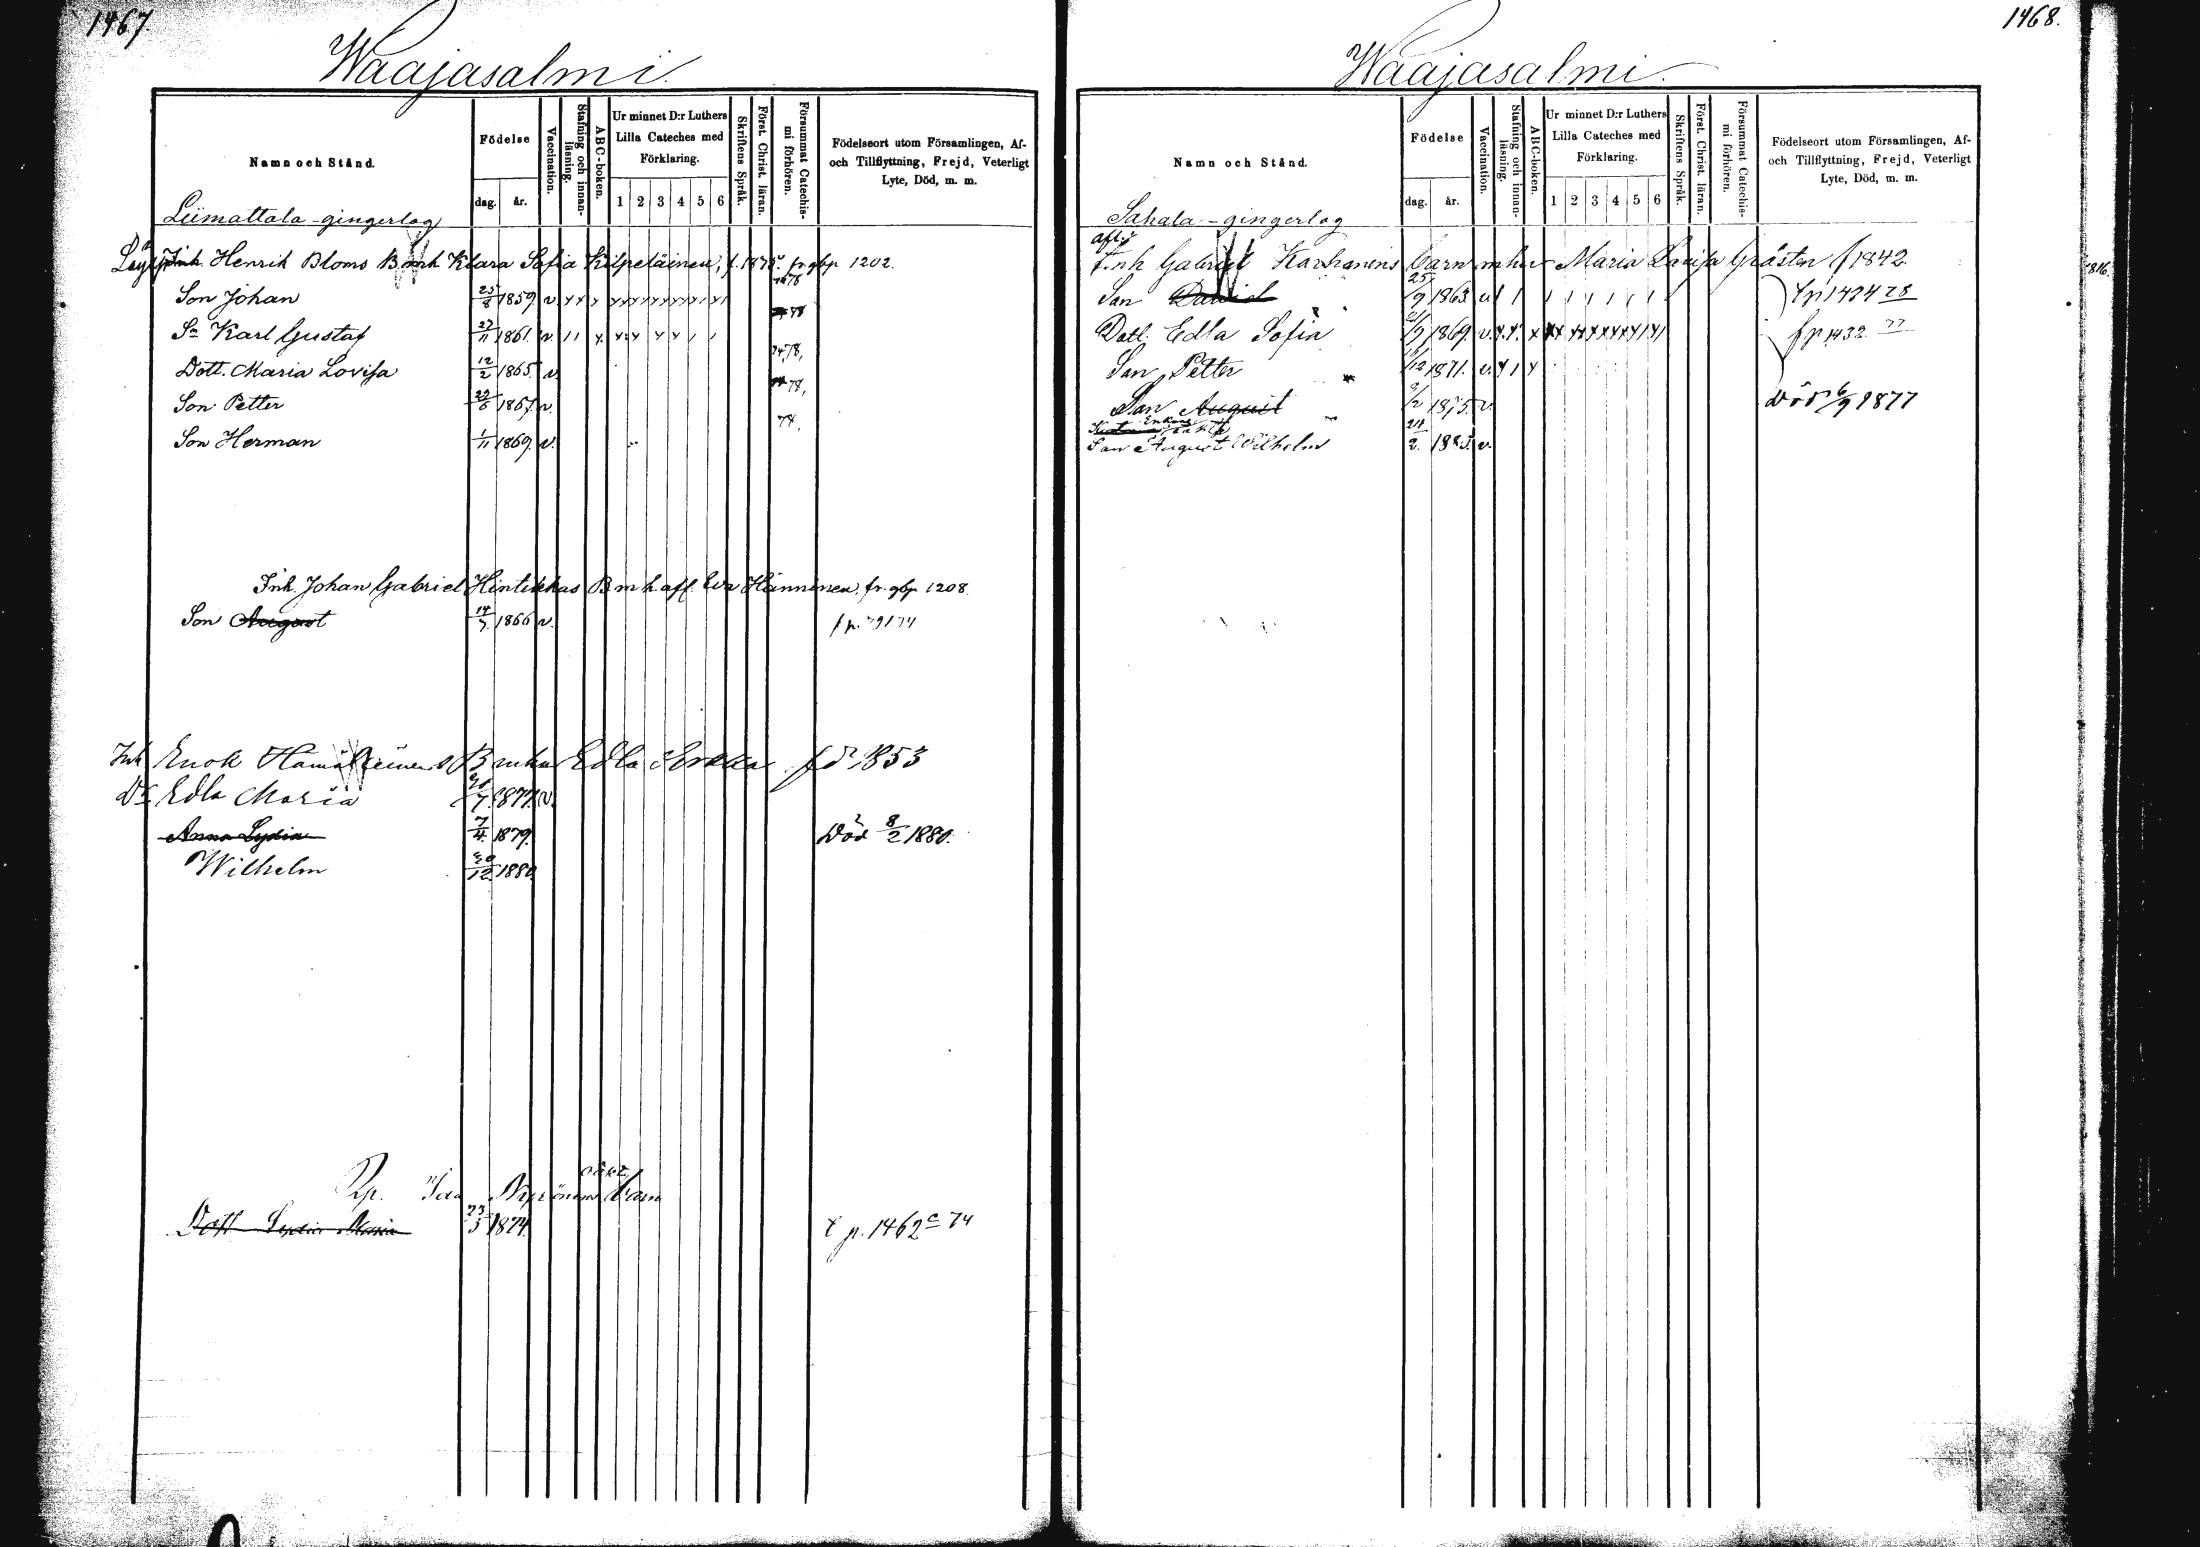 1467.
Waajasalmi.
Namn och Stånd.
Födelse
dag. år.
Vaccination.
Stafning och innanläsning.
ABC-boken.
Ur minnet D:r Luthers Lilla Cateches med Förklaring.
1 2 3 4 5 6
Skriftens Språk.
Först. Christ. läran.
Försummat Catechismi förhören.
Födelseort utom Församlingen, Af- och Tillflyttning, Frejd, Veterligt Lyte, Död, m. m.
Liimattala-gingerlag
Inh. Henrik Bloms B mh Klara Sofia Kilpeläinen, fr. gbp 1202.
Son Johan 25/8 1859 v. 78
Sn Karl Gustaf 27/11 1861. v. 78
Dott. Maria Lovisa 12/2 1865 v. 78,
Son Petter 29/6 1867. v. 78,
Son Herman 1/11 1869. v. 78,
Inh. Johan Gabriel Hintikkas B m h afl. Eva Hänninen, fr. gbp 1208.
Son August 14/7 1866 v.
Inh Enok Hämäläinens B mhu Edla fd 1853
Dr Edla Maria 7. 1877. v.
Anna Lydia 7/4 1879. Död 8/2 1880.
Wilhelm 30/12 1880
Jan barn
Dott Lydia Maria 23/3 1874. t p. 1462 c 74
1468.
Waajasalmi.
Namn och Stånd.
Födelse
dag. år.
Vaccination.
Stafning och innanläsning.
ABC-boken.
Ur minnet D:r Luthers Lilla Cateches med Förklaring.
1 2 3 4 5 6
Skriftens Språk.
Först. Christ. läran.
Försummat Catechismi förhören.
Födelseort utom Församlingen, Af- och Tillflyttning, Frejd, Veterligt Lyte, Död, m. m.
Sahala-gingerlag
afl.
Inh Gabriel Karhunens barn mhu Maria Lovisa Gråsten f 1842.
Son David 25/9 1863. v.
Dott. Edla Sofia 1869. v. 1432 77
Son Petter /12 1871. v.
Son August 9/2 1875. v. Död 6/9 1877
Enkans
Son August Wilhelm 24/2. v.
1816.